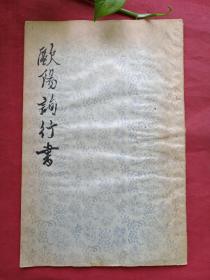 歐陽詢行書